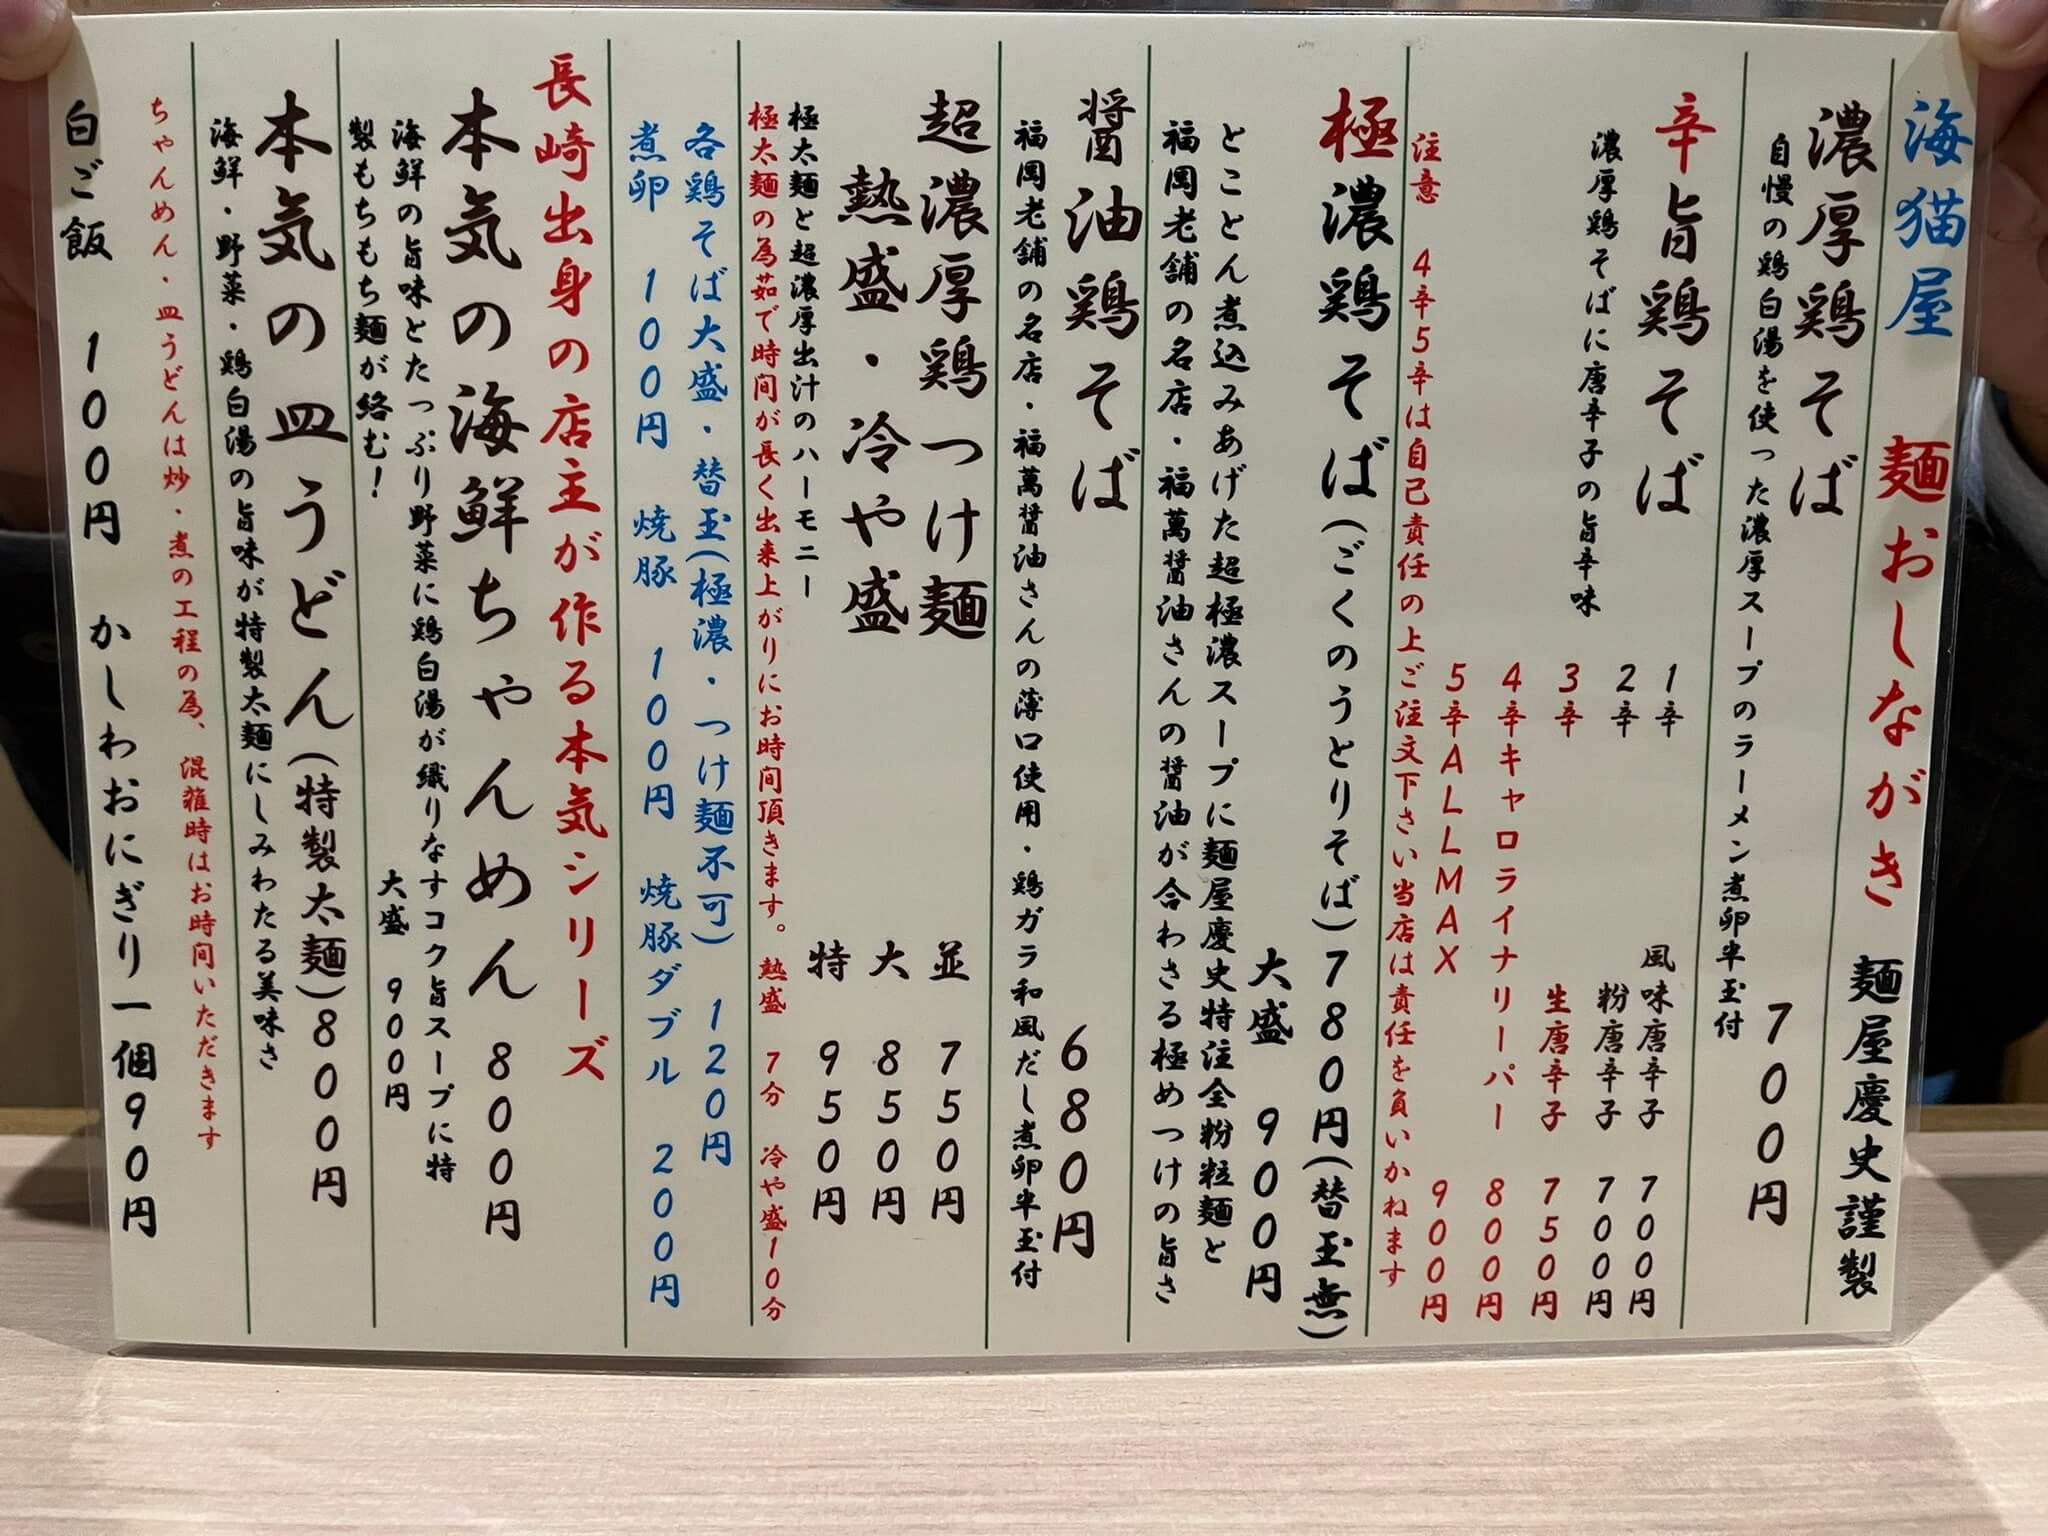 海猫屋 麺おしながき 麺屋慶史謹製
濃厚鶏そば 700円
自慢の鶏白湯を使った濃厚スープのラーメン煮卵半玉付
辛旨鶏そば
濃厚鶏そばに唐辛子の旨辛味
1辛 風味唐辛子 700円
2辛 粉唐辛子 700円
3辛 生唐辛子 750円
4辛キャロライナリーパー 800円
5辛ALLMAX 900円
注意 4辛5辛は自己責任の上ご注文下さい当店は責任を負いかねます
極濃鶏そば(ごくのうとりそば)780円(替玉無)
大盛 900円
とことん煮込みあげた超極濃スープに麺屋慶史特注全粉粒麺と
福岡老舗の名店・福萬醤油さんの醤油が合わさる極めつけの旨さ
醤油鶏そば 680円
福岡老舗の名店・福萬醤油さんの薄口使用・鶏ガラ和風だし煮卵半玉付
超濃厚鶏つけ麺 並 750円
熱盛・冷や盛 大 850円
特 950円
極太麺と超濃厚出汁のハーモニー
極太麺の為茹で時間が長く出来上がりにお時間頂きます。熱盛 7分 冷や盛10分
各鶏そば大盛・替玉(極濃・つけ麺不可) 120円
煮卵 100円 焼豚 100円 焼豚ダブル 200円
長崎出身の店主が作る本気シリーズ
本気の海鮮ちゃんめん 800円
海鮮の旨味とたっぷり野菜に鶏白湯が織りなすコク旨スープに特
製もちもち麺が絡む! 大盛 900円
本気の皿うどん(特製太麺)800円
海鮮・野菜・鶏白湯の旨味が特製太麺にしみわたる美味さ
ちゃんめん・皿うどんは炒・煮の工程の為、混雑時はお時間いただきます
白ご飯 100円 かしわおにぎり一個90円